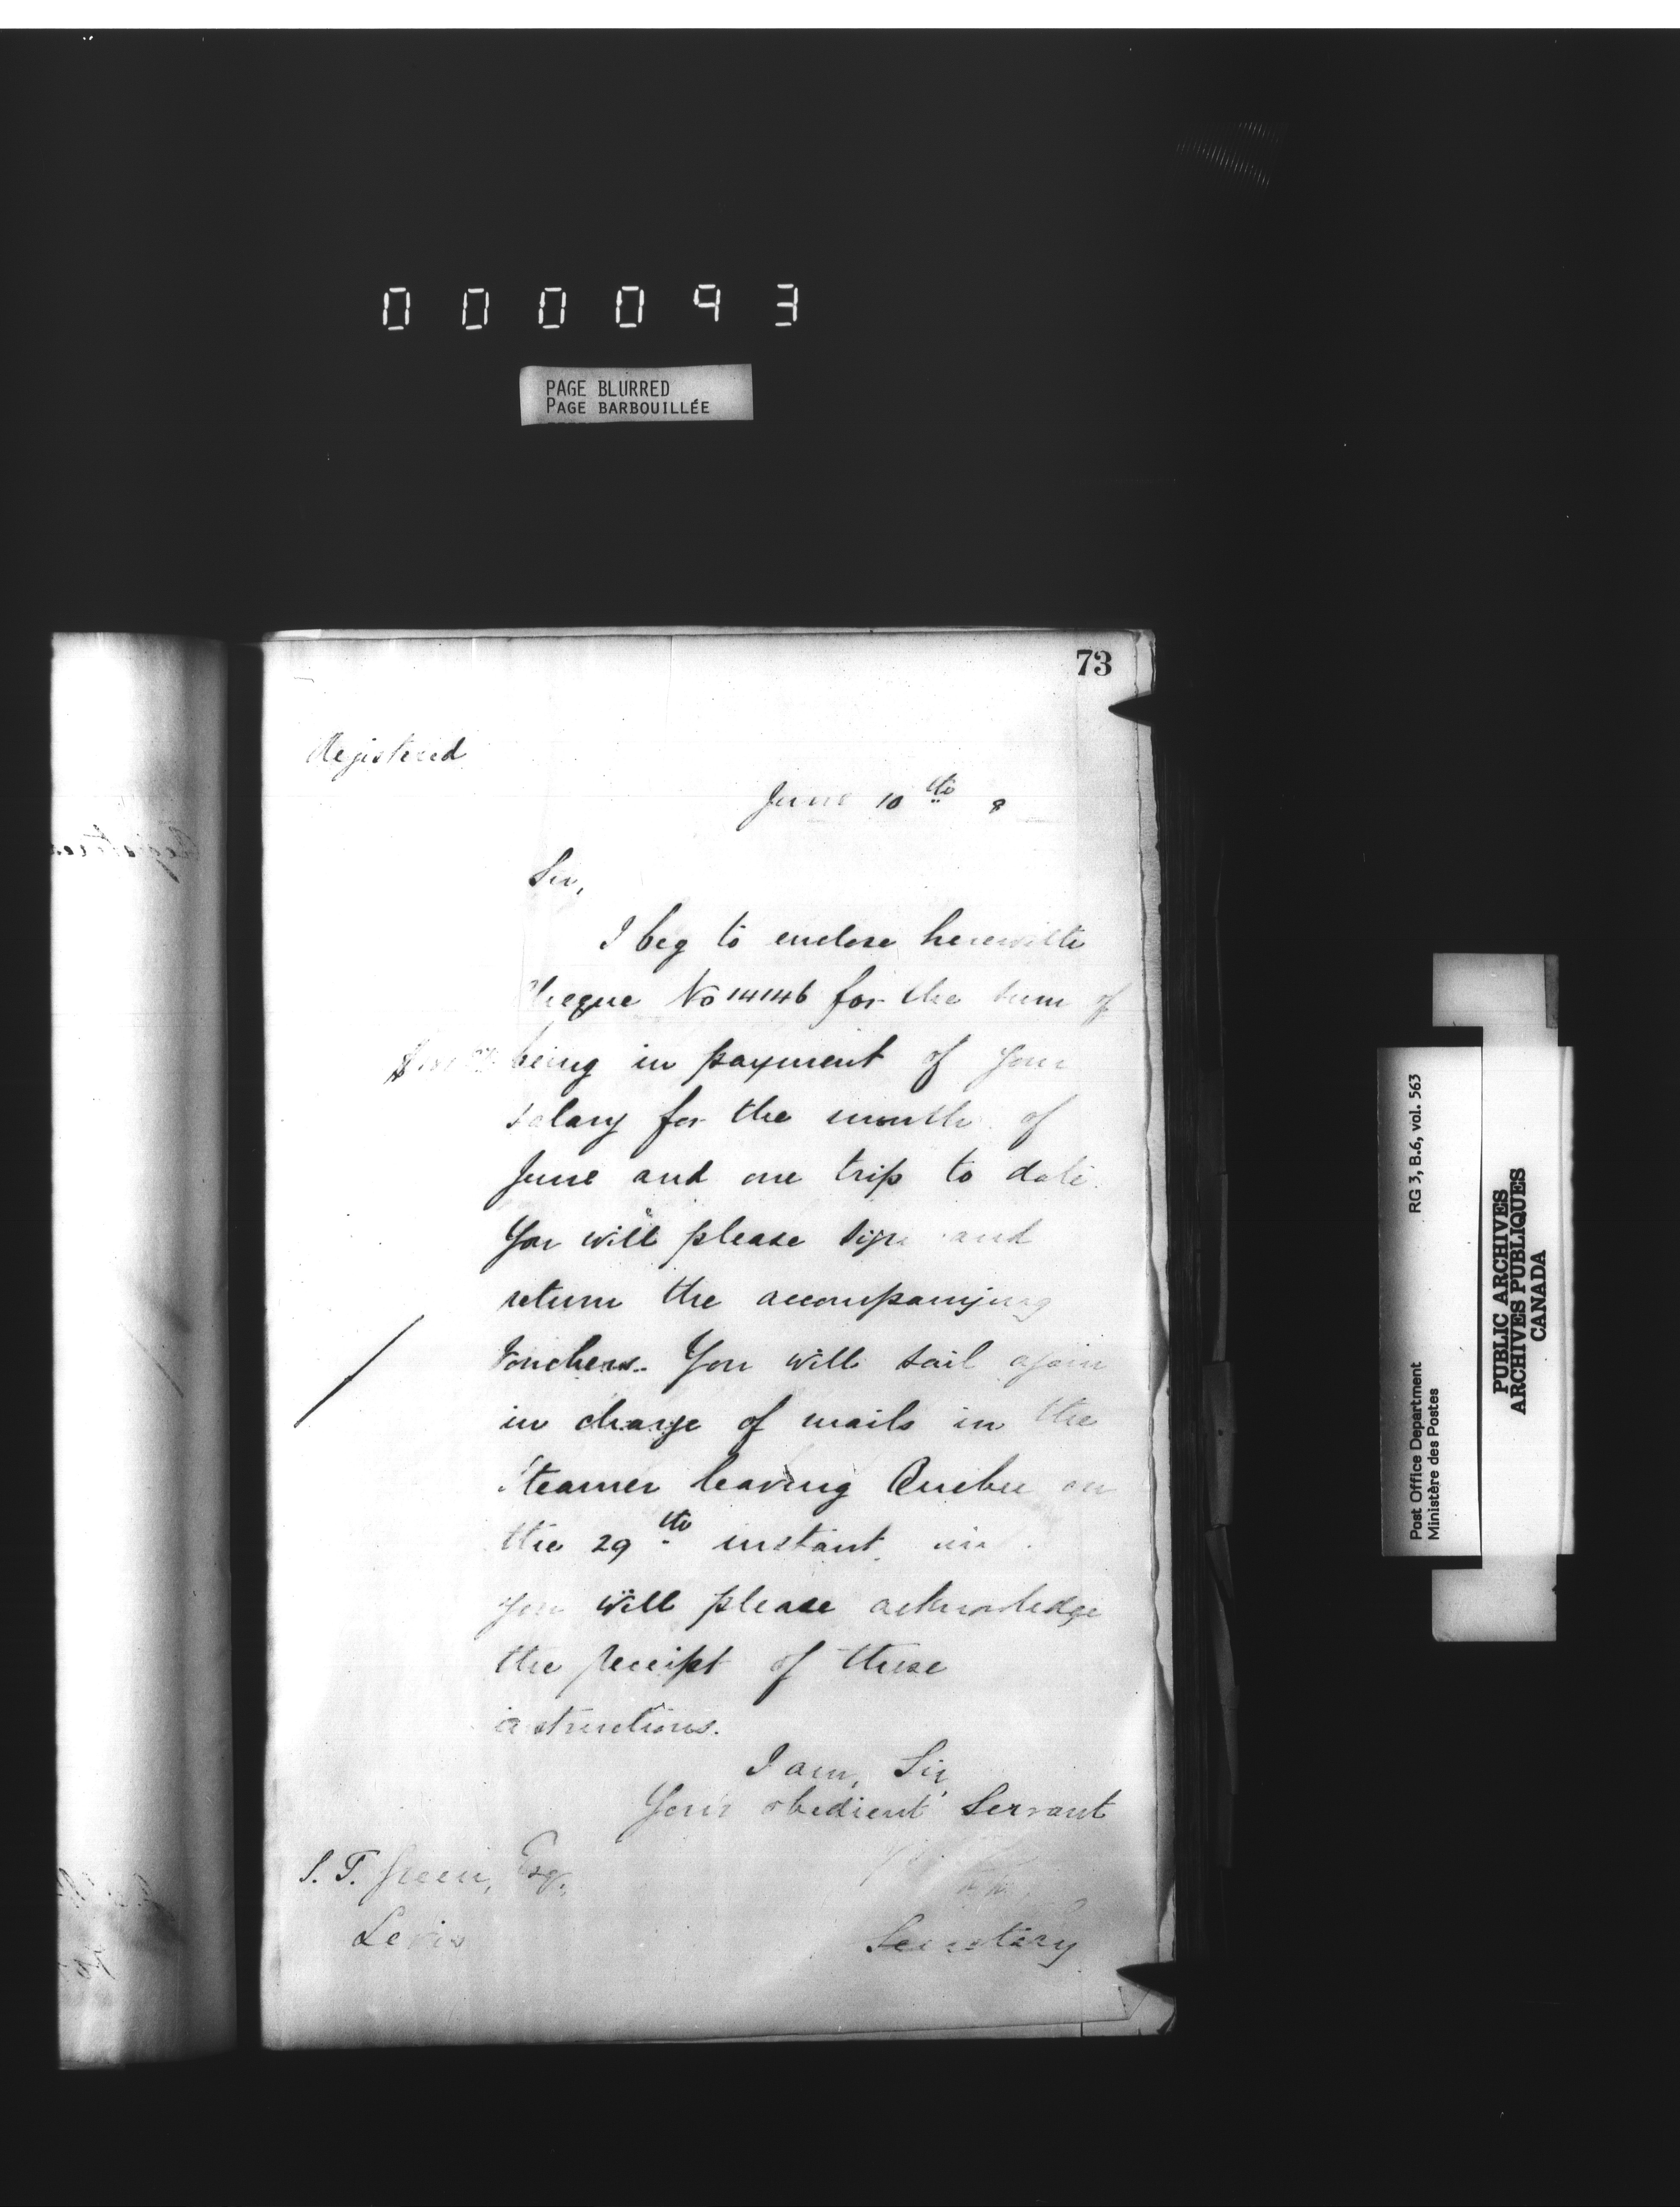 000093
PAGE BLURRED
PAGE BARBOUILLÉE
73
Registered
June 10th 8
Sir,
I beg to enclose herewith
Cheque No 14146 for the sum of
being in payment of your
salary for the month of
June and one trip to date.
You will please sign and
return the accompanying
Vouchers. You will sail again
in charge of mails in the
Steamer leaving Quebec on
the 29th instant.
you will please acknowledge
the receipt of these
instructions.
I am, Sir,
Your obedient Servant
S. T. Green, Esq.,
Levis
Secretary
Post Office Department RG 3, B.6, vol. 563
Ministère des Postes
PUBLIC ARCHIVES
ARCHIVES PUBLIQUES
CANADA